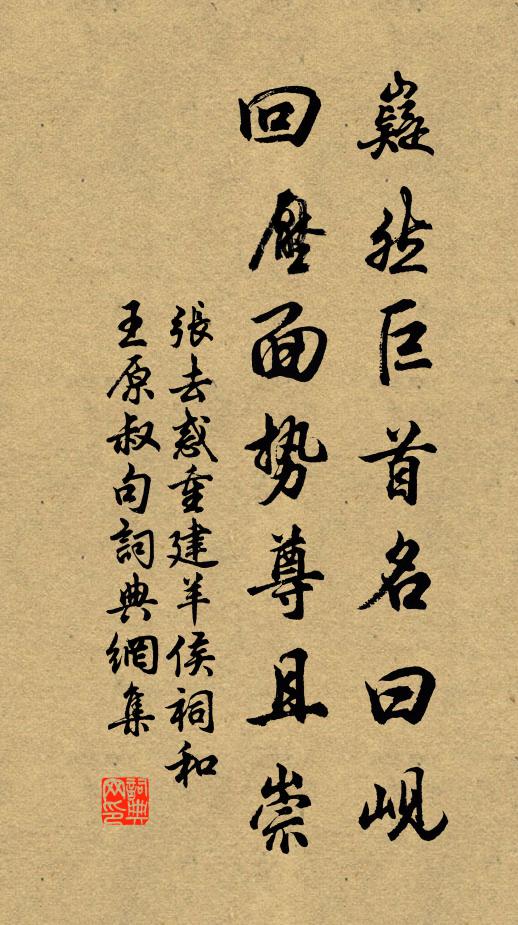 嶷然巨首名曰岘
回壓面势尊且崇
張去惑重建羊侯祠和
王原叔句詞典網集
詞典网印